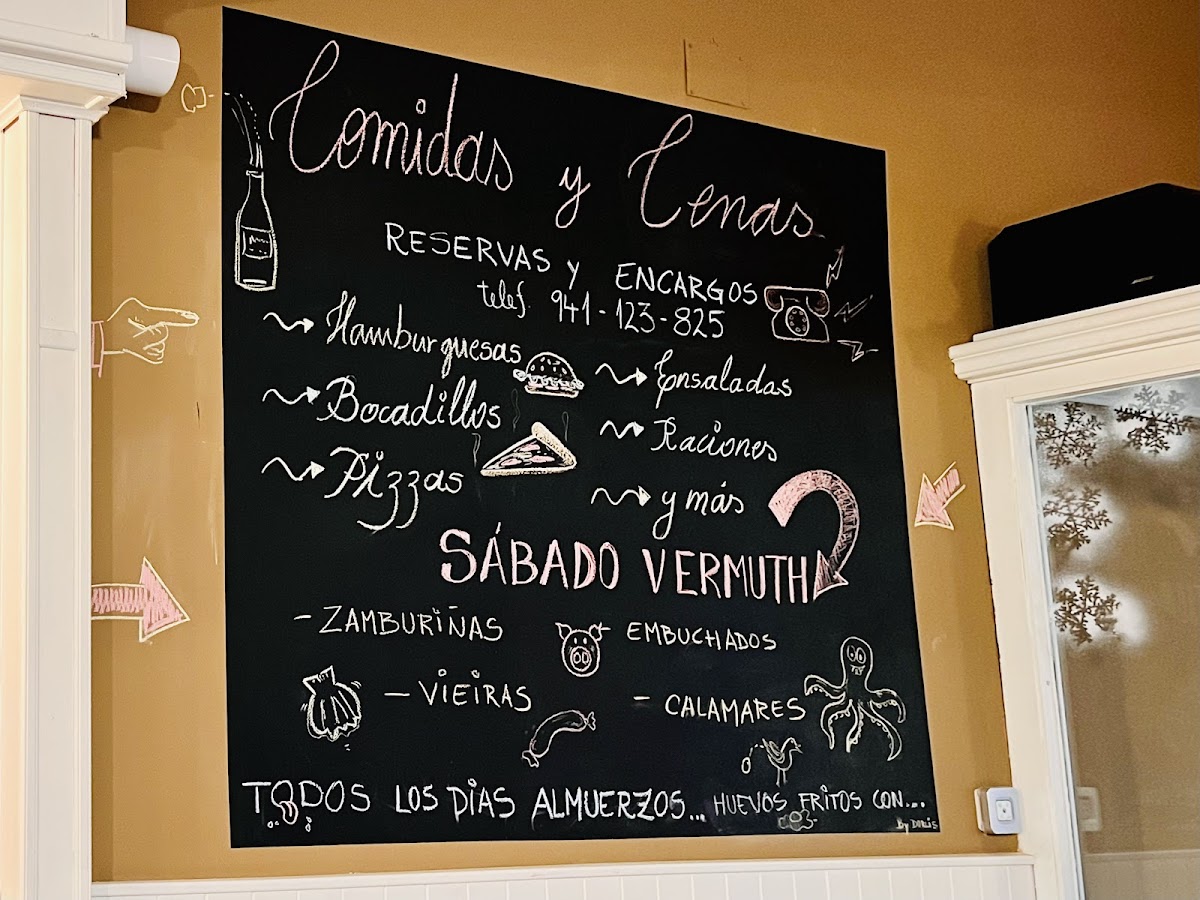 Comidas y Cenas
RESERVAS y ENCARGOS
telef. 941-123-825
Hamburguesas
Bocadillos
Pizzas
Ensaladas
Raciones
y más
SÁBADO VERMUTH
- ZAMBURIÑAS
EMBUCHADOS
- VIEIRAS
- CALAMARES
TODOS LOS DIAS ALMUERZOS... HUEVOS FRITOS CON...
By DORIS